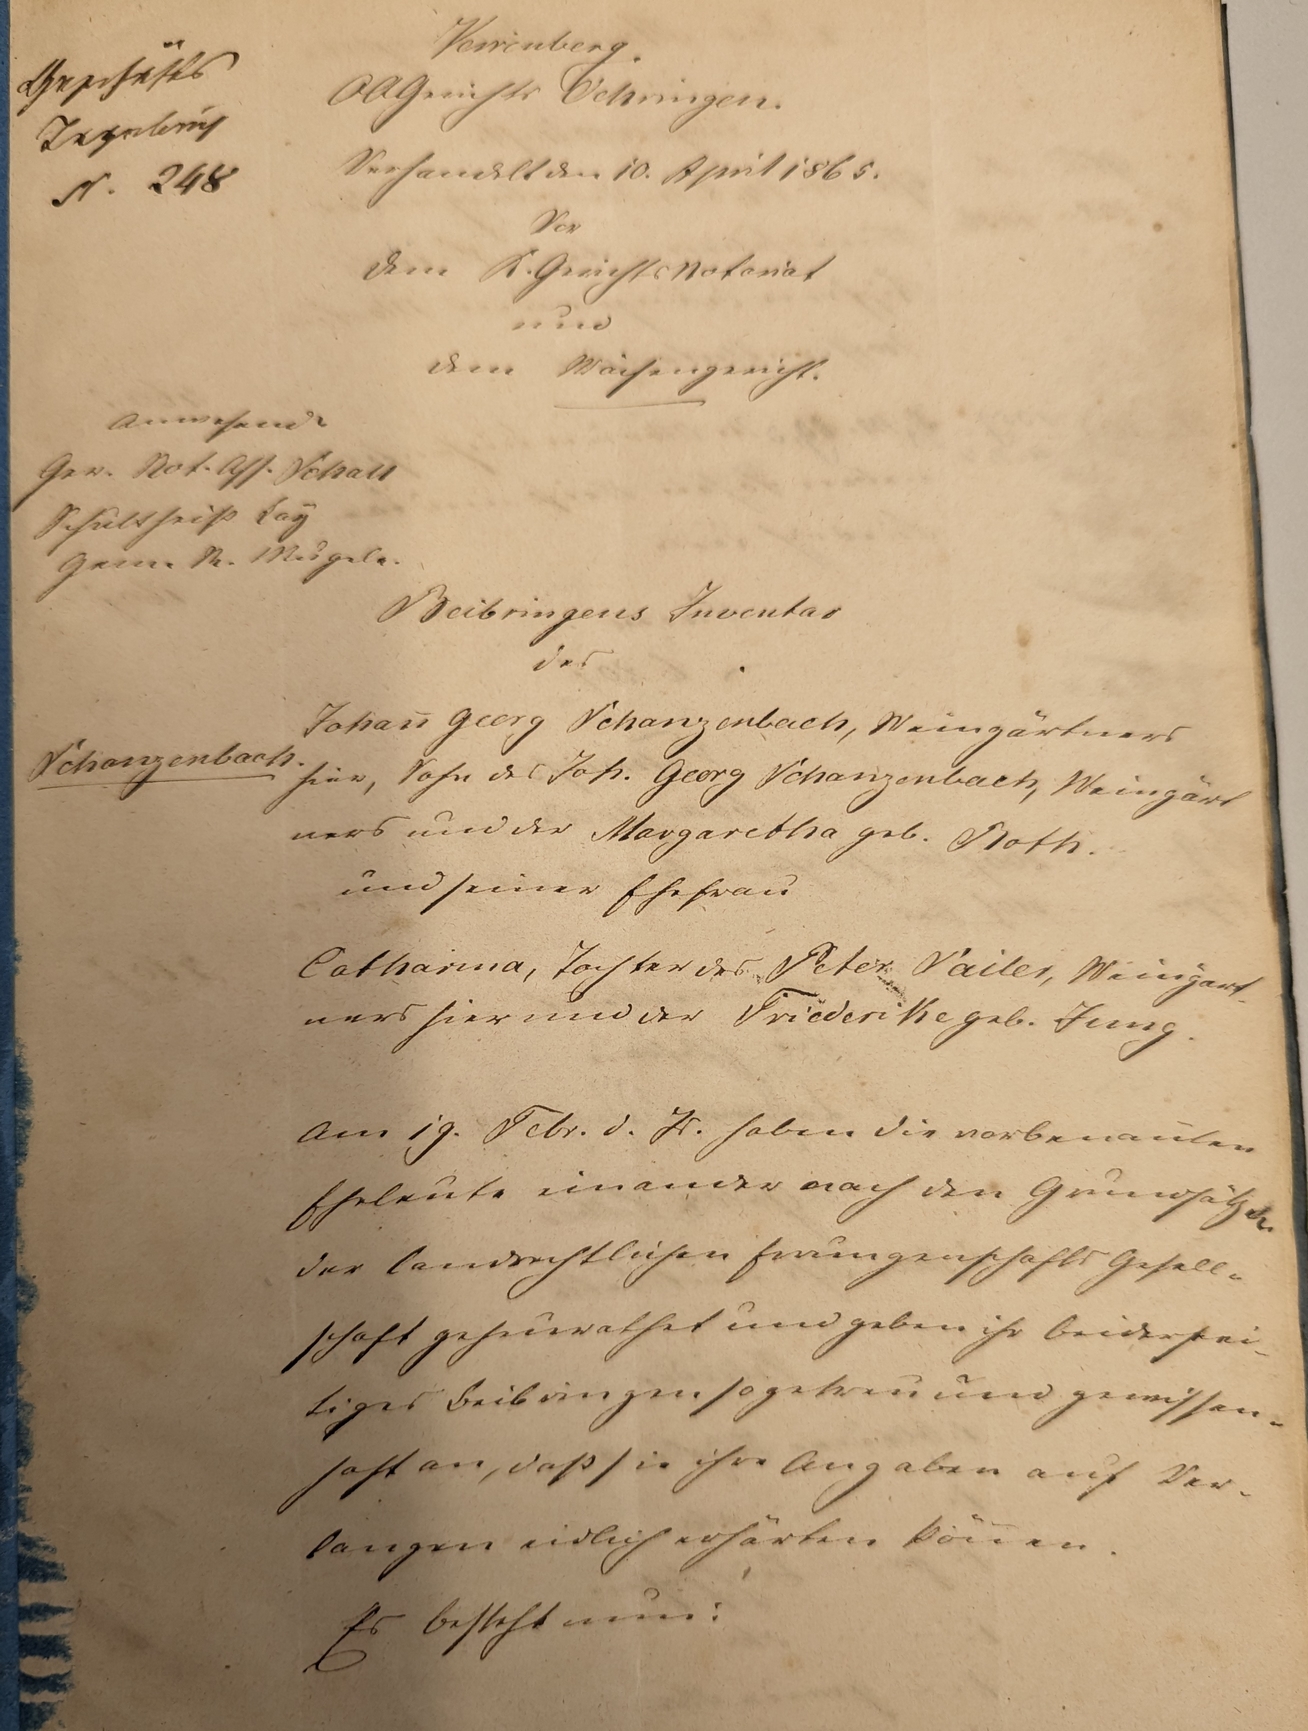 Geschäfts
Tagebuch
N. 248
Verrenberg.
OAGerichts Oehringen.
Verhandelt den 10. April 1865.
Vor
dem K. Gerichts Notariat
und
dem Waisengericht.
Anwesend
Ger. Not. Ass. Schall
Schultheiß Lay
Gem. R. Weigele.
Beibringens Inventar
des
Schanzenbach.
Johañ Georg Schanzenbach, Weingärtners
hier, Sohn des Joh. Georg Schanzenbach, Weingärt
ners und der Margaretha geb. Roth.
und seiner Ehefrau
Catharina, Tochter des Peter Sailer, Weingärt-
ners hier und der Friederike geb. Jung.
Am 19. Febr. d. Js. haben die vorbenañten
Eheleute einander nach den Grundsätzen
der landrechtlichen Errungenschafts Gesell-
schaft geheurathet und geben ihr beidersei-
tiges Beibringen so getreu und gewissen-
haft an, daß sie ihre Angaben auf Ver-
langen eidlich erhärten köñen.
Es besteht nun: